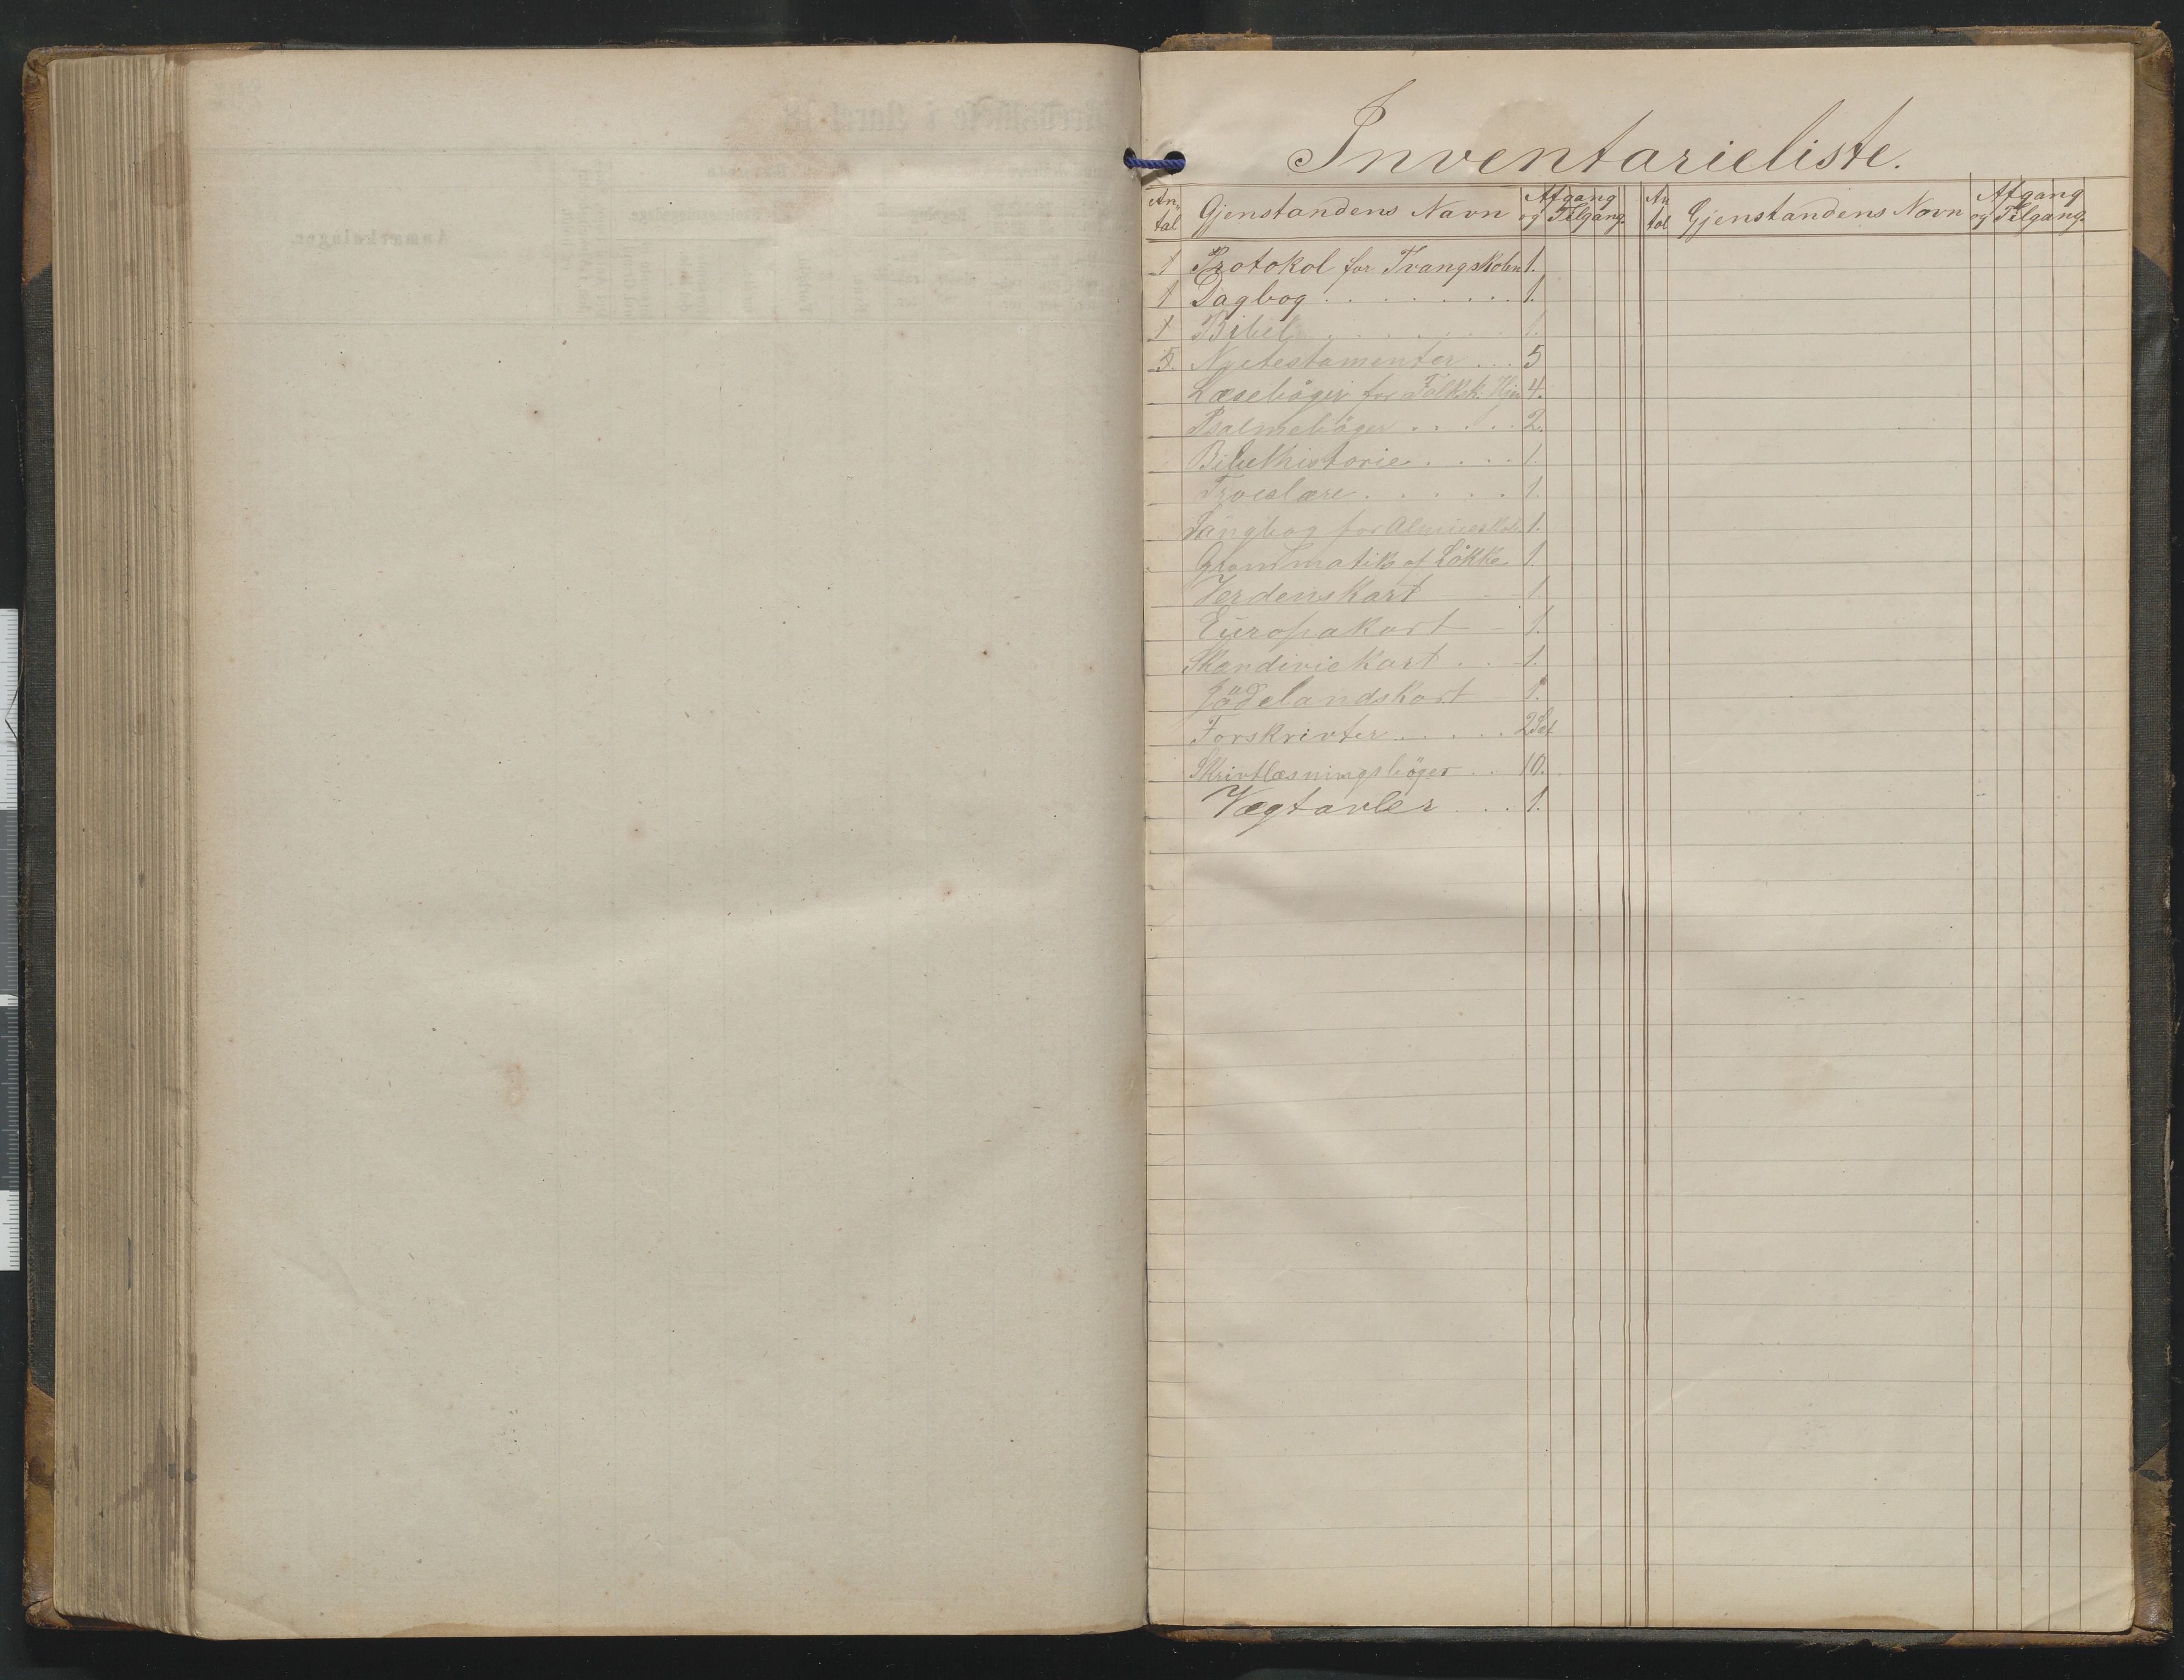 Inventarieliste.
An tal Gjenstandens Navn Afgang og Tilgang. An tal Gjenstandens Navn Afgang og Tilgang.
1 Protokol for Tvangskolen 1.
1 Dagbog . . . . . . . . . 1.
1 Bibel . . . . . . . 1.
5. Nyetestamenter . . . 5
Læsebøger for Folksk. Hjem 4.
Psalmebøger . . . . . 2.
Bibelhistorie . . . . 1.
Troeslære . . . . . 1.
Sangbog for Almueskol. 1.
Grammatik af Løkke 1.
Verdenskart 1.
Europakart 1.
Skandiviekart . . 1.
Jødelandskart 1.
Forskrivter . . . . . 2 Sæt
Skrivtlæsningsbøger . . 10.
Vægtavler . . . 1.